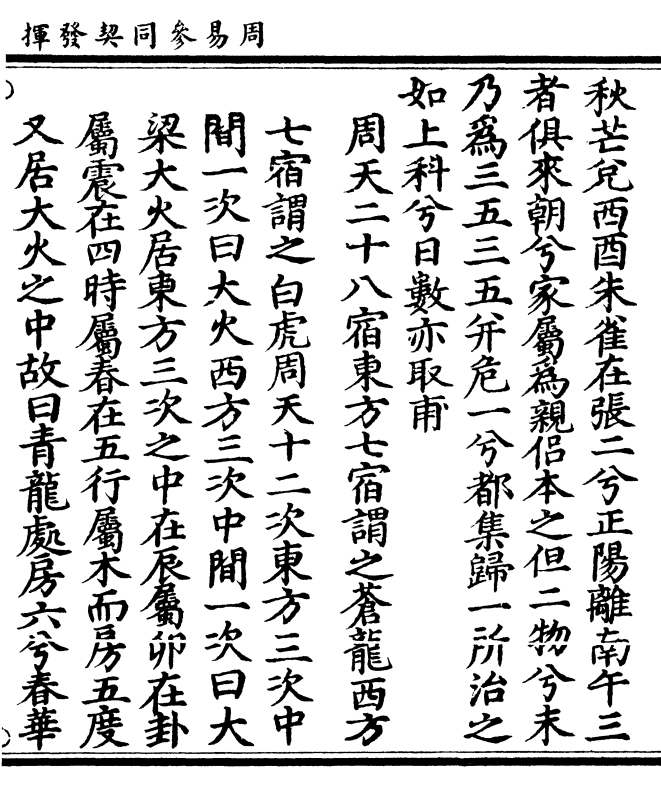 周易參同契發揮
秋芒兌西酉朱雀在張二兮正陽離南午三
者俱來朝兮家屬爲親侶本之但二物兮末
乃爲三五三五并危一兮都集歸一所治之
如上科兮日數亦取甫
周天二十八宿東方七宿謂之蒼龍西方
七宿謂之白虎周天十二次東方三次中
間一次曰大火西方三次中間一次曰大
梁大火居東方三次之中在辰屬卯在卦
屬震在四時屬春在五行屬木而房五度
又居大火之中故曰青龍處房六兮春華